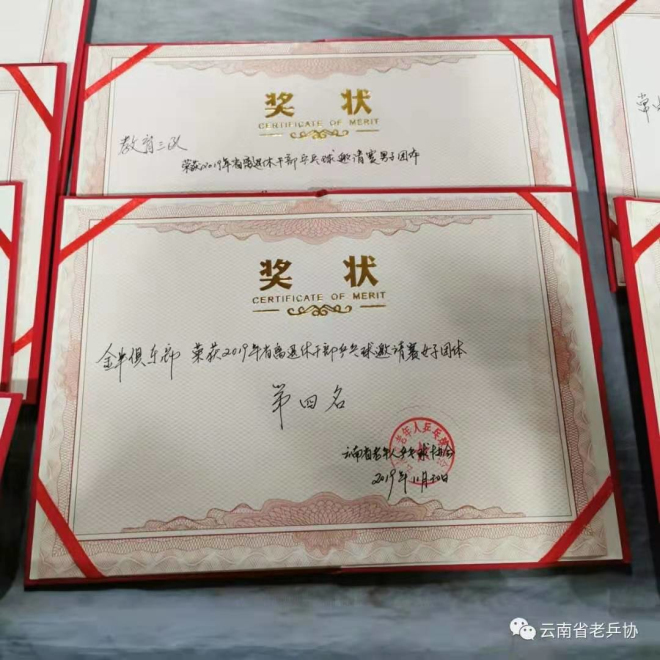 奖 状
CERTIFICATE OF MERIT
教育三队
荣获2019年省离退休干部乒乓球邀请赛男子团体
奖 状
CERTIFICATE OF MERIT
金牟俱乐部 荣获2019年省离退休干部乒乓球邀请赛女子团体
第四名
云南省老年人乒乓球协会
2019年11月30日
云南省老乒协